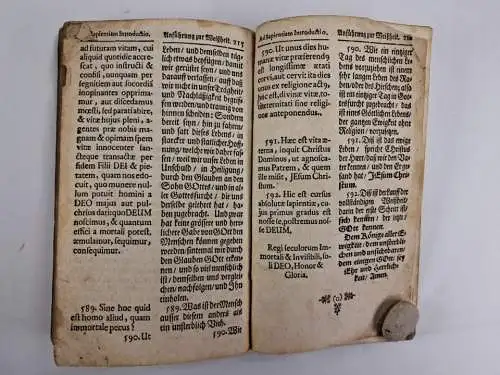 ad Sapientiam Introductio.
ad futuram vitam, cui
aliquid quotidie accre-
scat, quo instructi &
confisi, nunquam per
segnitiem aut socordiā
inopinantes opprima-
mur, aut discedamus
mœsti, sed parati alares,
& vitæ hujus pleni, a-
gentes præ nobis ma-
gnam & opimam spem
vitæ innocenter san-
cteque transactæ per
fidem Filii DEI & pie-
tatem, in gloriam ejus
exacta, quo munere
nullum potuit homini à
DEO majus aut pul-
chrius dari quo DEUM
noscimus, & quantum
effici à mortali potest,
æmulamur, sequimur,
consequimur.
589. Sine hoc quid
est homo aliud, quam
immortale pecus?
590. Ut
Anführung zur Weißheit. 215
Leben/ und demselben täg-
lich etwas beyfügen/ damit
wir drauf geruht und be-
reit seyn/ auch nicht in
unser Trägheit/
und Nachläßigkeit begrif-
fen werden/ und traurig von
hinnen scheiden/ Sondern
bereit seyn/ ihm zu fahren/
und satt dieses Lebens/ in
starcker und stattlicher Hoff-
nung/ welch wir vor uns se-
hen/ weil wir unser Leben in
Unschuld und Heiligung/
durch den Glauben an den
Sohn GOttes/ und in al-
ler Gottesfurcht/ die uns
derselbe gelehret hat/ ha-
ben zugebracht. Und war-
lich es hat nie keine herrli-
chere Gabe von GOtt dem
Menschen können gegeben
werden/ sintemal wir durch
den Glauben GOtt erken-
nen/ und so viel menschlich
ist/ demselben uns verglei-
chen/ nachfolgen/ und Ihn
einholen.
589. Was ist der Mensch
ausser diesem anders als
ein unsterblich Vieh.
590. Wie
Ad Sapientiam Introductio.
590. Ut unus dies hu-
manæ vitæ præferendꝰ
est longissimæ ætati
corvi aut cervi; ita dies
unus ex religione actꝰ,
hoc est, divinæ vitæ æ-
viternitati sine religione
anteponendus.
591. Hæc est vita æ-
terna, inquit Christus
Dominus, ut agnoscant
Patrem, & quem
ille misit, JEsum Chri-
stum.
592. Hic est cursus
absolutæ sapientiæ, cu-
jus primus gradus est
nosse se, postremus nos-
se DEUM,
Regi seculorum Im-
mortali & Invisibili, so-
li DEO, Honor &
Gloria.
Anführung zur Weißheit. 216
590. Wie ein eintziger
Tag des menschlichen Le-
bens vorzuziehen ist einem
sehr langen Leben des Ra-
ben/ oder des Hirschen; also
ist ein eintziger Tag in Got-
tesfurcht zugebracht/ das
ist eines Göttlichen Lebens/
der gantzen Ewigkeit ohne
Religion/ vorzuziehen.
591. Diß ist das ewige
Leben/ spricht Christus
der Herr/ daß sie den Va-
ter kennen/ und den Er ge-
sandt hat/ JEsum Chri-
stum.
592. Diß ist der Lauff der
vollständigen Weißheit/
darin der erste Schrit ist/
sich kennen/ der letzte/
GOtt kennen.
Dem Könige aller E-
wigkeit/ dem unsterbli-
chen und unsichtbaren/
dem einigen GOtt/ sey
Ehr und Herrlich-
keit/ Amen.
(o)